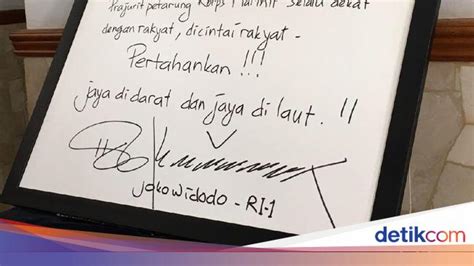 Prajurit petarung Korps Marinir selalu dekat
dengan rakyat, dicintai rakyat -
Pertahankan !!!
jaya didarat dan jaya di laut. !!
jokowidodo - RI-1
detikcom